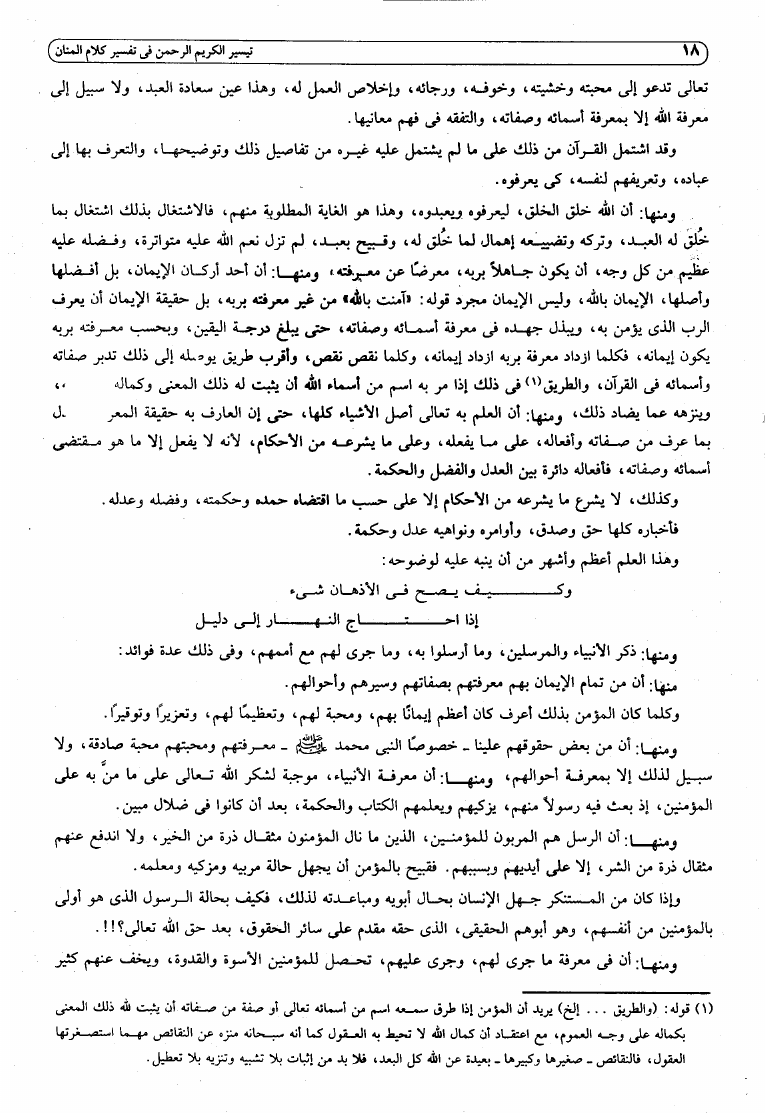 ١٨
تيسير الكريم الرحمن فى تفسير كلام المنان
تعالى تدعو إلى محبته وخشيته، وخوفه، ورجائه، وإخلاص العمل له، وهذا عين سعادة العبد، ولا سبيل إلى
معرفة الله إلا بمعرفة أسمائه وصفاته، والتفقه فى فهم معانيها.
وقد اشتمل القرآن من ذلك على ما لم يشتمل عليه غيره من تفاصيل ذلك وتوضيحها، والتعرف بها إلى
عباده، وتعريفهم لنفسه، كى يعرفوه.
ومنها: أن الله خلق الخلق، ليعرفوه ويعبدوه، وهذا هو الغاية المطلوبة منهم، فالاشتغال بذلك اشتغال بما
خُلق له العبد، وتركه وتضييعه إهمال لما خُلق له، وقبيح بعبد، لم تزل نعم الله عليه متواترة، وفضله عليه
عظيم من كل وجه، أن يكون جاهلاً بربه، معرضًا عن معرفته، ومنها: أن أحد أركان الإيمان، بل أفضلها
وأصلها، الإيمان بالله، وليس الإيمان مجرد قوله: «آمنت بالله» من غير معرفته بربه، بل حقيقة الإيمان أن يعرف
الرب الذى يؤمن به، ويبذل جهده فى معرفة أسمائه وصفاته، حتى يبلغ درجة اليقين، وبحسب معرفته بربه
يكون إيمانه، فكلما ازداد معرفة بربه ازداد إيمانه، وكلما نقص نقص، وأقرب طريق يوصله إلى ذلك تدبر صفاته
وأسمائه فى القرآن، والطريق(١) فى ذلك إذا مر به اسم من أسماء الله أن يثبت له ذلك المعنى وكماله
وينزهه عما يضاد ذلك، ومنها: أن العلم به تعالى أصل الأشياء كلها، حتى إن العارف به حقيقة
بما عرف من صفاته وأفعاله، على ما يفعله، وعلى ما يشرعه من الأحكام، لأنه لا يفعل إلا ما هو مقتضى
أسمائه وصفاته، فأفعاله دائرة بين العدل والفضل والحكمة.
وكذلك، لا يشرع ما يشرعه من الأحكام إلا على حسب ما اقتضاه حمده وحكمته، وفضله وعدله.
فأخباره كلها حق وصدق، وأوامره ونواهيه عدل وحكمة.
وهذا العلم أعظم وأشهر من أن ينبه عليه لوضوحه:
وكيف يصح فى الأذهان شىء
إذا احتاج النهار إلى دليل
ومنها: ذكر الأنبياء والمرسلين، وما أرسلوا به، وما جرى لهم مع أممهم، وفى ذلك عدة فوائد:
منها: أن من تمام الإيمان بهم معرفتهم بصفاتهم وسيرهم وأحوالهم.
وكلما كان المؤمن بذلك أعرف كان أعظم إيمانًا بهم، ومحبة لهم، وتعظيمًا لهم، وتعزيرًا وتوقيرًا.
ومنها: أن من بعض حقوقهم علينا - خصوصًا النبى محمد ﷺ - معرفتهم ومحبتهم محبة صادقة، ولا
سبيل لذلك إلا بمعرفة أحوالهم، ومنها: أن معرفة الأنبياء، موجبة لشكر الله تعالى على ما منَّ به على
المؤمنين، إذ بعث فيه رسولاً منهم، يزكيهم ويعلمهم الكتاب والحكمة، بعد أن كانوا فى ضلال مبين.
ومنها: أن الرسل هم المربون للمؤمنين، الذين ما نال المؤمنون مثقال ذرة من الخير، ولا اندفع عنهم
مثقال ذرة من الشر، إلا على أيديهم وبسببهم. فقبيح بالمؤمن أن يجهل حالة مربيه ومزكيه ومعلمه.
وإذا كان من المستنكر جهل الإنسان بحال أبويه ومباعدته لذلك، فكيف بحالة الرسول الذى هو أولى
بالمؤمنين من أنفسهم، وهو أبوهم الحقيقى، الذى حقه مقدم على سائر الحقوق، بعد حق الله تعالى؟!!.
ومنها: أن فى معرفة ما جرى لهم، وجرى عليهم، تحصل للمؤمنين الأسوة والقدوة، ويخف عنهم كثير
(١) قوله: (والطريق ... إلخ) يريد أن المؤمن إذا طرق سمعه اسم من أسمائه تعالى أو صفة من صفاته أن يثبت لله ذلك المعنى
بكماله على وجه العموم، مع اعتقاد أن كمال الله لا تحيط به العقول كما أنه سبحانه منزه عن النقائص مهما استصغرتها
العقول، فالنقائص - صغيرها وكبيرها - بعيدة عن الله كل البعد، فلا بد من إثبات بلا تشبيه وتنزيه بلا تعطيل.